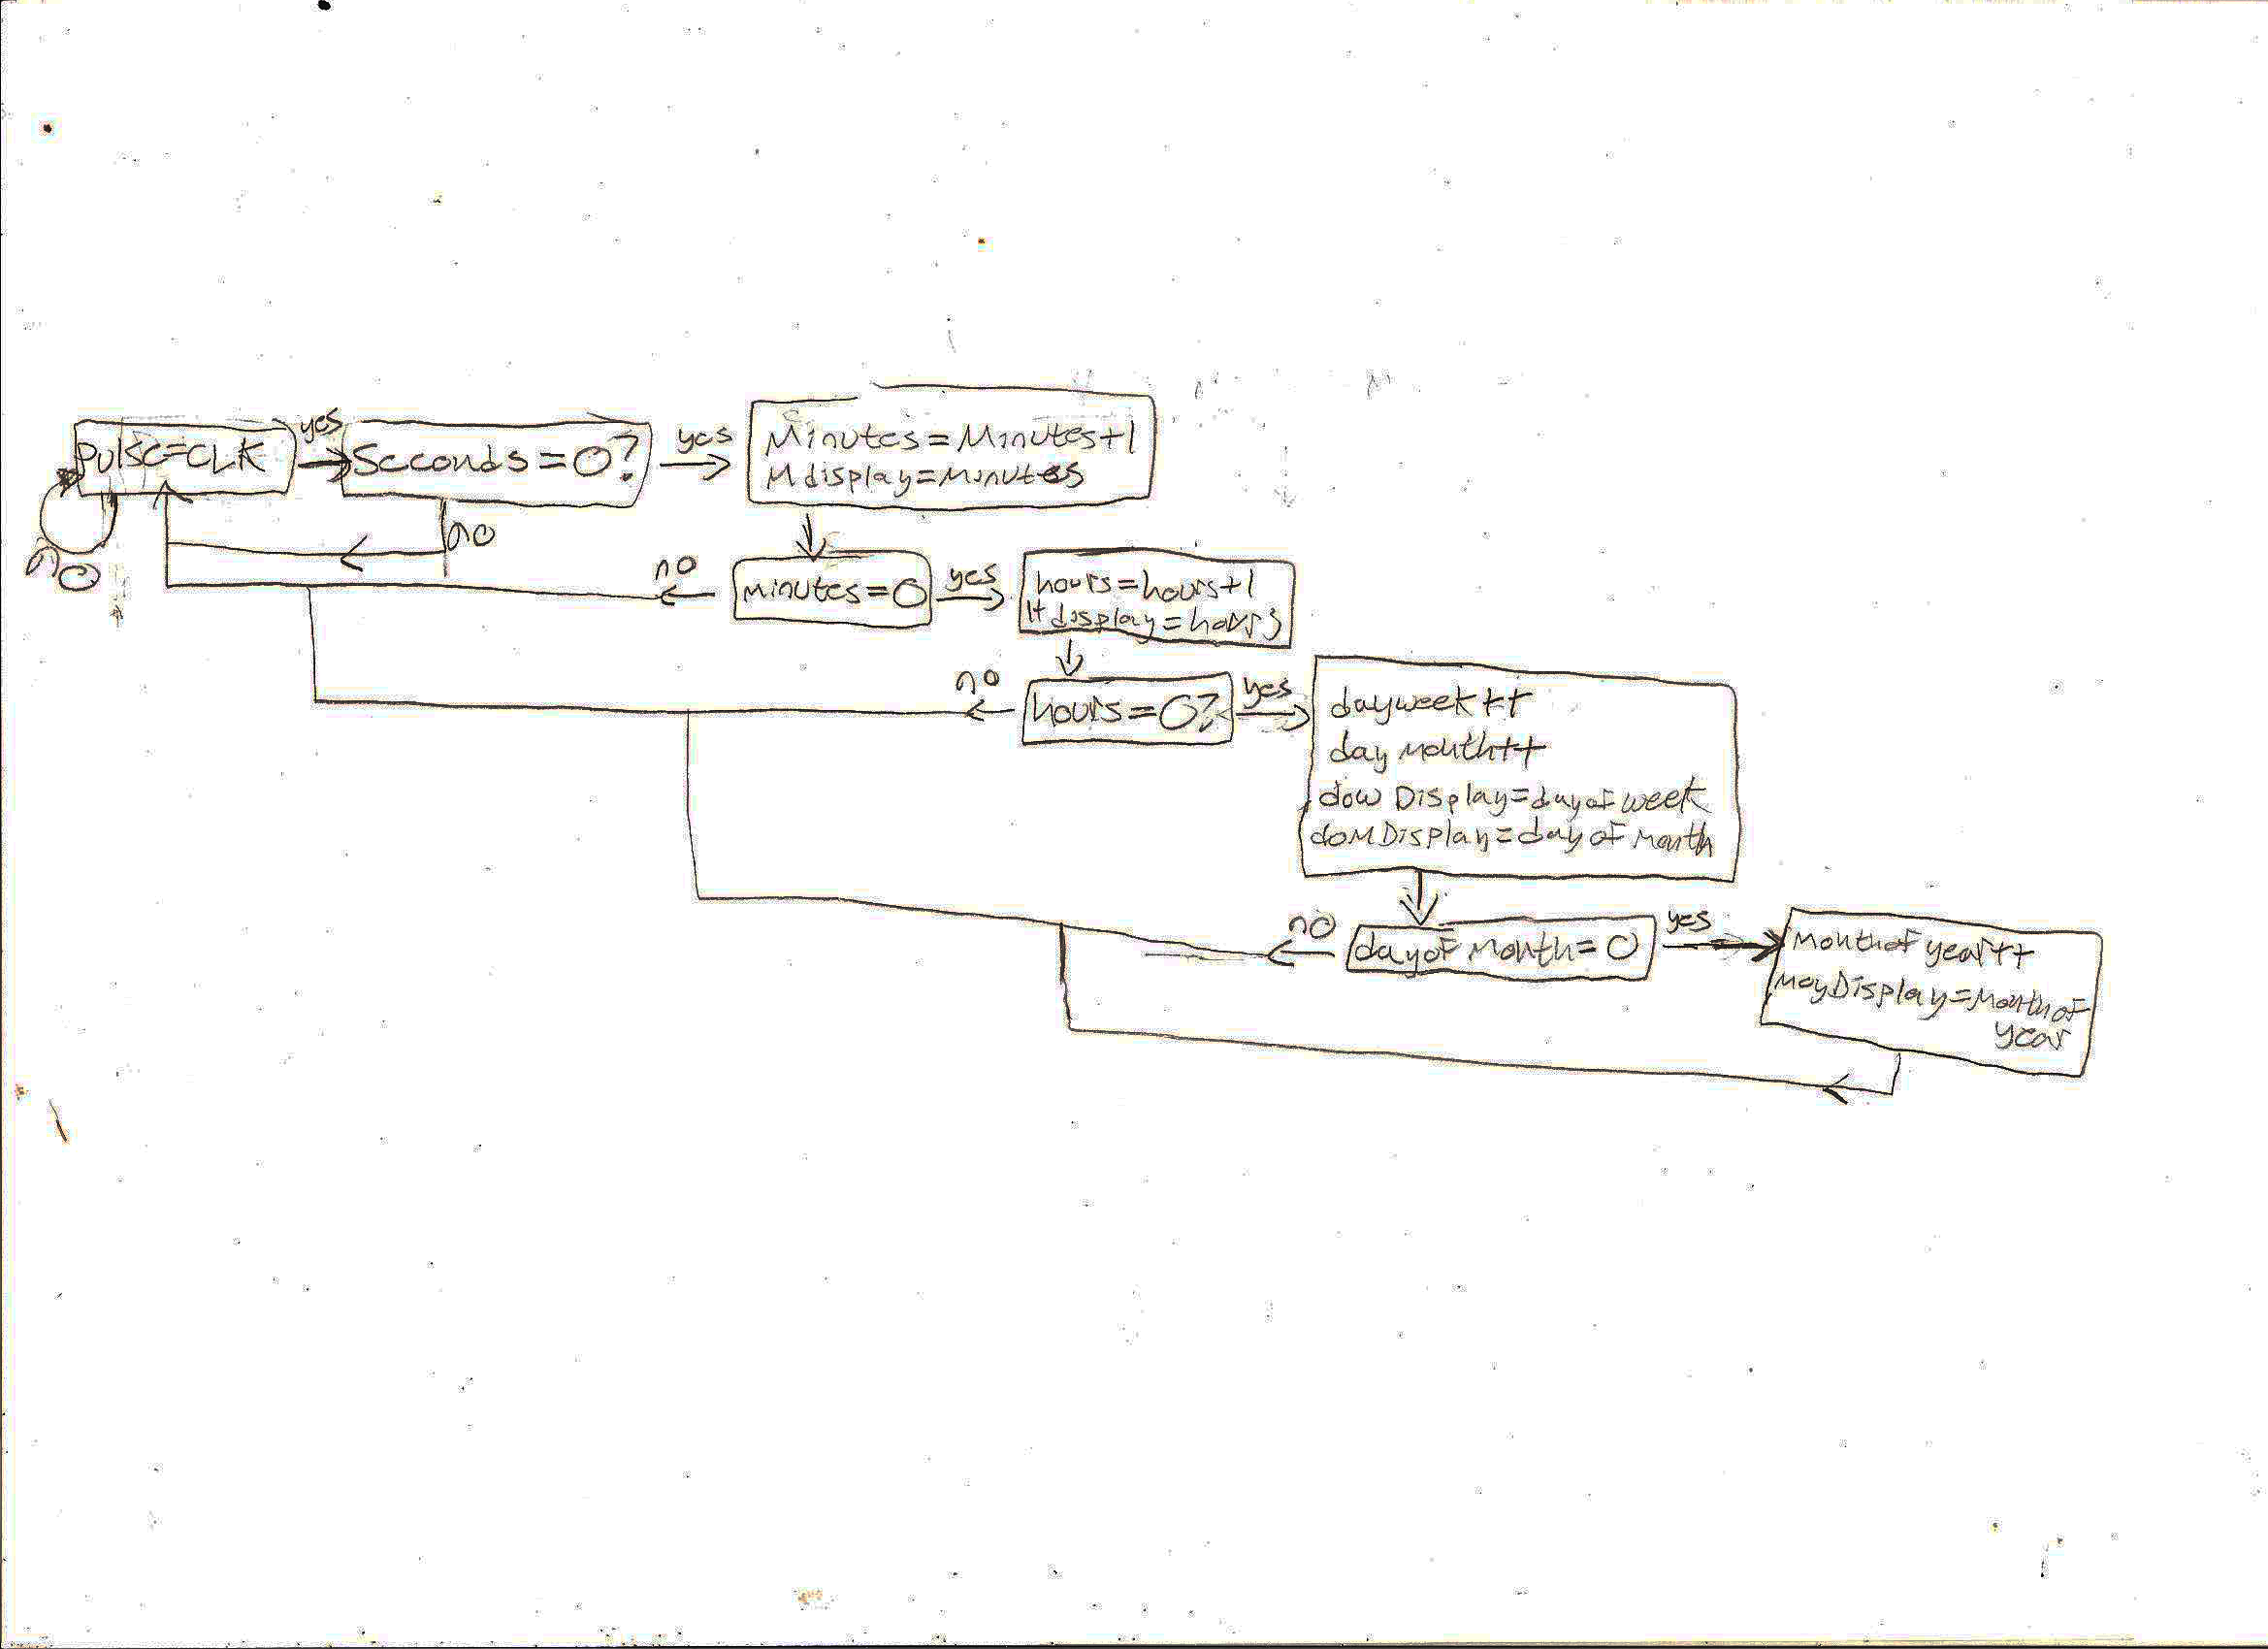 pulse=CLK
yes
Seconds=0?
yes
Minutes=Minutes+1
Mdisplay=Minutes
no
no
no
minutes=0
yes
hours=hours+1
Hdisplay=hours
no
hours=0?
yes
dayweek++
day month++
dow Display=dayof week
doMDisplay=day of month
no
dayof month=0
yes
monthof year++
moyDisplay=monthof
year